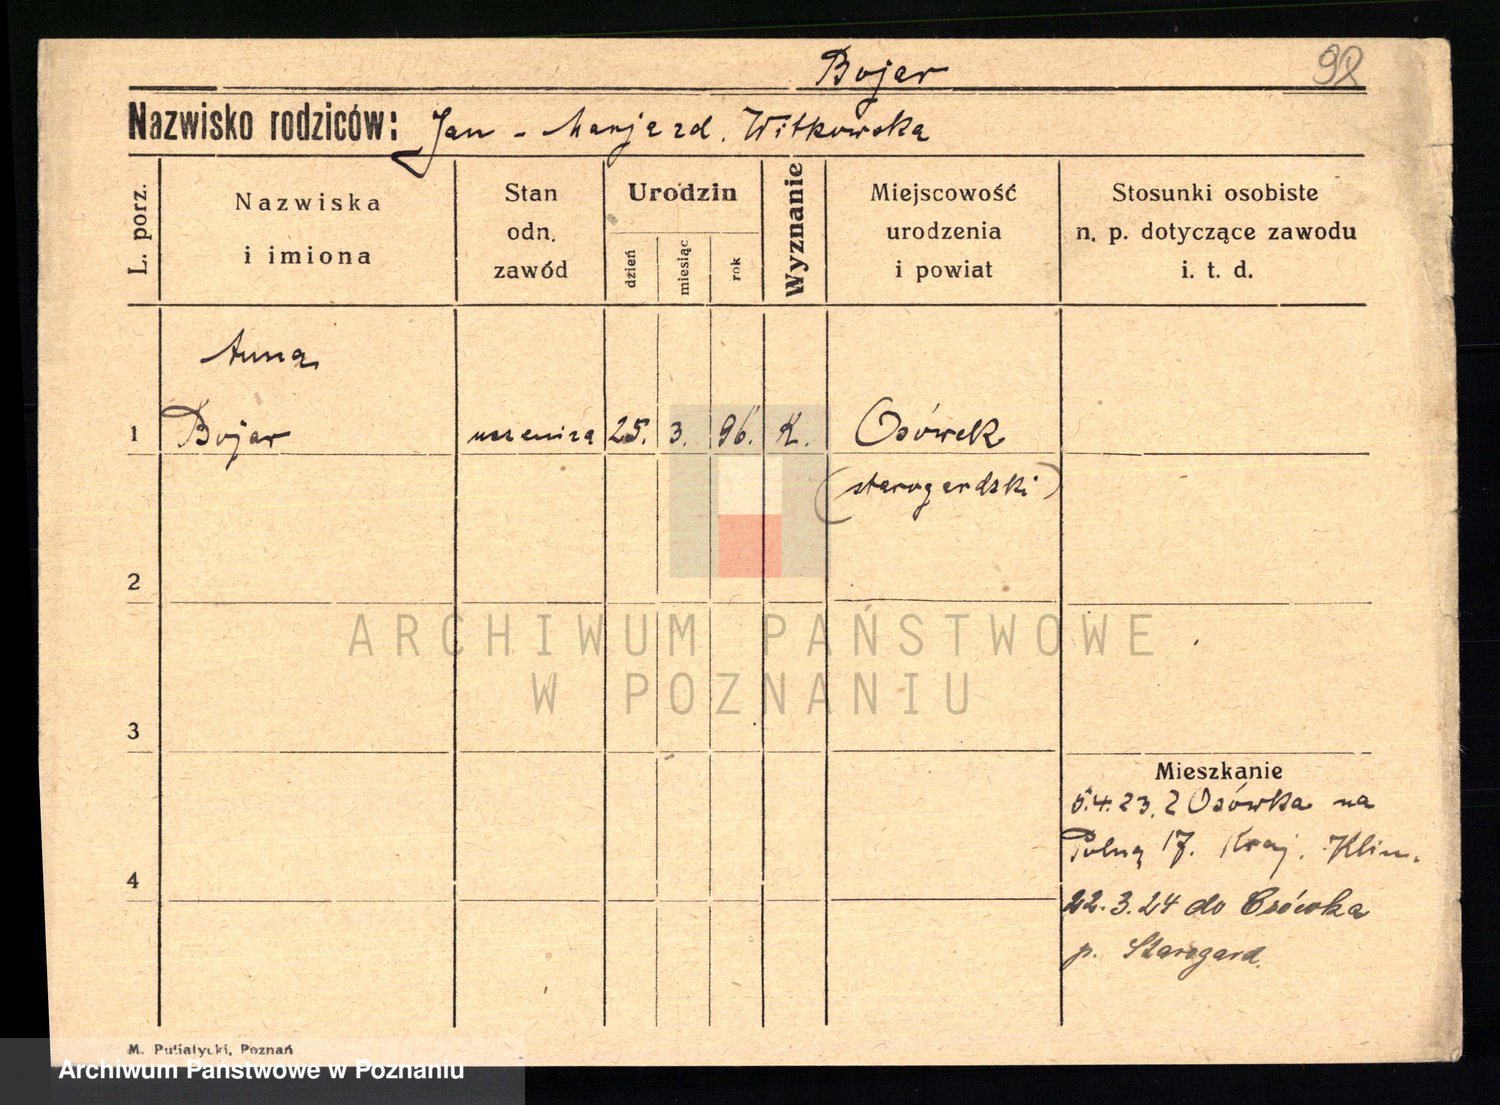 Bojar
92
Nazwisko rodziców: Jan - Marja zd. Witkowska
L. porz.
Nazwiska
i imiona
Stan
odn.
zawód
Urodzin
dzień
miesiąc
rok
Wyznanie
Miejscowość
urodzenia
i powiat
Stosunki osobiste
n. p. dotyczące zawodu
i. t. d.
Anna
1 Bojar uczenica 25. 3. 96. K. Osówek
(starogardzki)
2
3
Mieszkanie
5.4.23. z Osówka na
Polną 17. Kraj. Klin.
4
22.3.24 do Osówka
p. Starogard.
M. Putiatycki, Poznań
ARCHIWUM PAŃSTWOWE
W POZNANIU
Archiwum Państwowe w Poznaniu